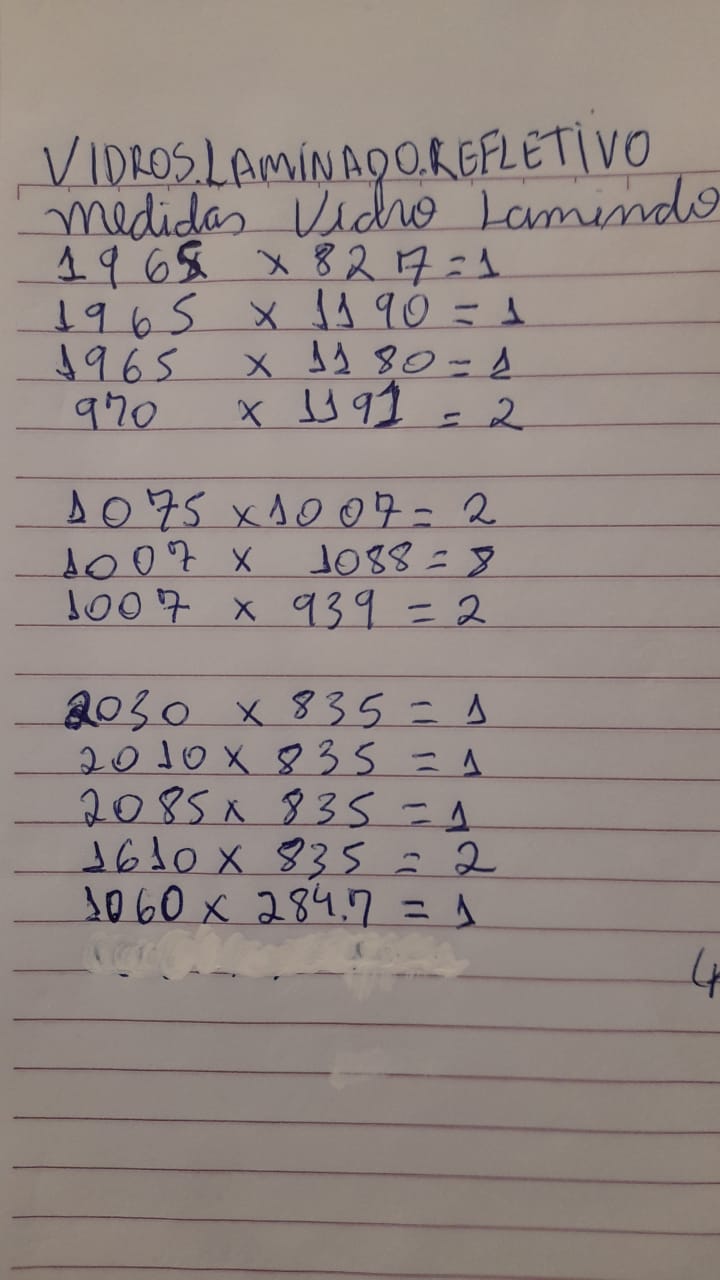 VIDROS.LAMINADO.REFLETIVO
medidas Vidro Lamindo
1965 x 827 = 1
1965 x 1190 = 1
1965 x 1180 = 1
970 x 1191 = 2
1075 x 1007 = 2
1007 x 1088 = 8
1007 x 939 = 2
2030 x 835 = 1
2010 x 835 = 1
2085 x 835 = 1
1610 x 835 = 2
1060 x 284.7 = 1
4